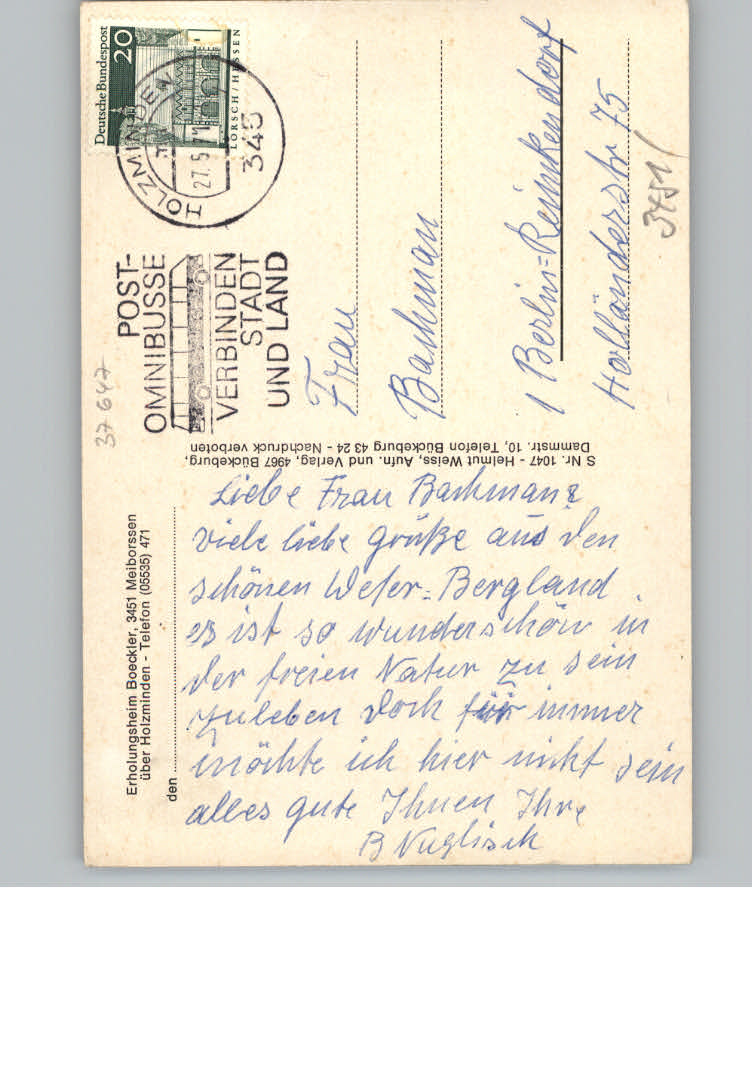 Erholungsheim Boeckler, 3451 Meiborssen
über Holzminden - Telefon (05535) 471
den
Liebe Frau Bachman
viele liebe Grüße aus den
schönen Weser=Bergland
es ist so wunderschön in
der freien Natur zu sein
zuleben doch für immer
möchte ich hier nicht sein
alles gute Ihnen Ihre
B Nuglisch
S Nr. 1047 - Helmut Weiss, Aufn. und Verlag, 4967 Bückeburg,
Dammstr. 10, Telefon Bückeburg 43 24 - Nachdruck verboten
37 647
POST-
OMNIBUSSE
VERBINDEN
STADT
UND LAND
HOLZMINDEN
27.5.71
345
Deutsche Bundespost
20
LORSCH/HESSEN
Frau
Bachman
1 Berlin=Reinickendorf
Holländerstr 75
3451/